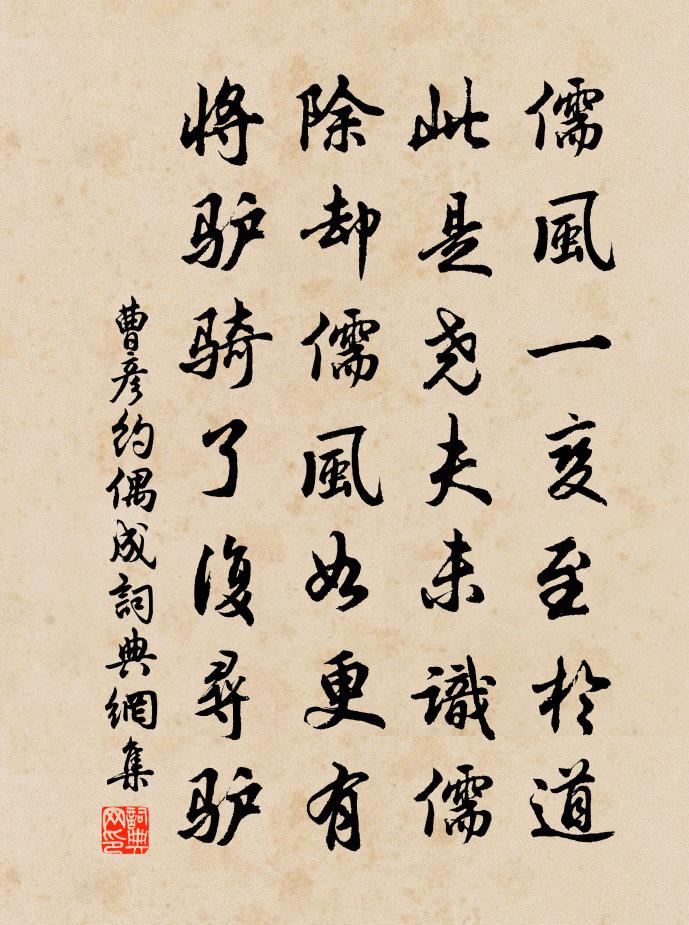 儒風一变至於道
此是尧夫未識儒
除却儒風如更有
将驴骑了復尋驴
曹彦約偶成詞典網集
詞典网印